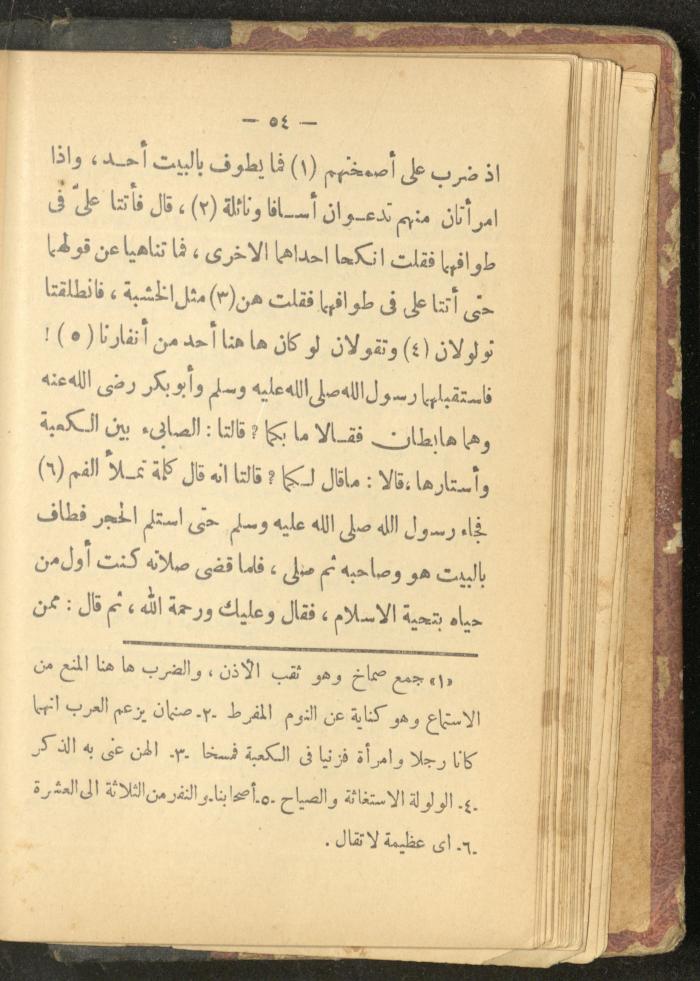 — ٥٤ —
اذ ضرب على أصمختهم (١) فما يطوف بالبيت أحـد ، واذا
امرأتان منهم تدعـوان أسـافا ونائلة (٢) ، قال فأتتا علىّ فى
طوافهما فقلت انكحا احداهما الاخرى ، فما تناهيا عن قولهما
حتى أتتا على فى طوافهما فقلت هن (٣) مثل الخشبة ، فانطلقتا
تولولان (٤) وتقولان لو كان ها هنا أحد من أنفارنا (٥) !
فاستقبلهما رسول الله صلى الله عليه وسلم وأبو بكر رضى الله عنه
وهما هابطان فقـالا ما بكما ؟ قالتا : الصابىء بين الكعبة
وأستارها ، قالا : ماقال لـكما ؟ قالتا انه قال كلمة تمـلأ الفم (٦)
فجاء رسول الله صلى الله عليه وسلم حتى استلم الحجر فطاف
بالبيت هو وصاحبه ثم صلى ، فلما قضى صلاته كنت أول من
حياه بتحية الاسلام ، فقال وعليك ورحمة الله ، ثم قال : ممن
«١» جمع صماخ وهو ثقب الأذن ، والضرب ها هنا المنع من
الاستماع وهو كناية عن النوم المفرط -٢- صنمان يزعم العرب انهما
كانا رجلا وامرأة فزنيا فى الكعبة فمسخا -٣- الهن عنى به الذكر
-٤- الولولة الاستغاثة والصياح -٥- أصحابنا - والنفر من الثلاثة الى العشرة
-٦- اى عظيمة لا تقال .